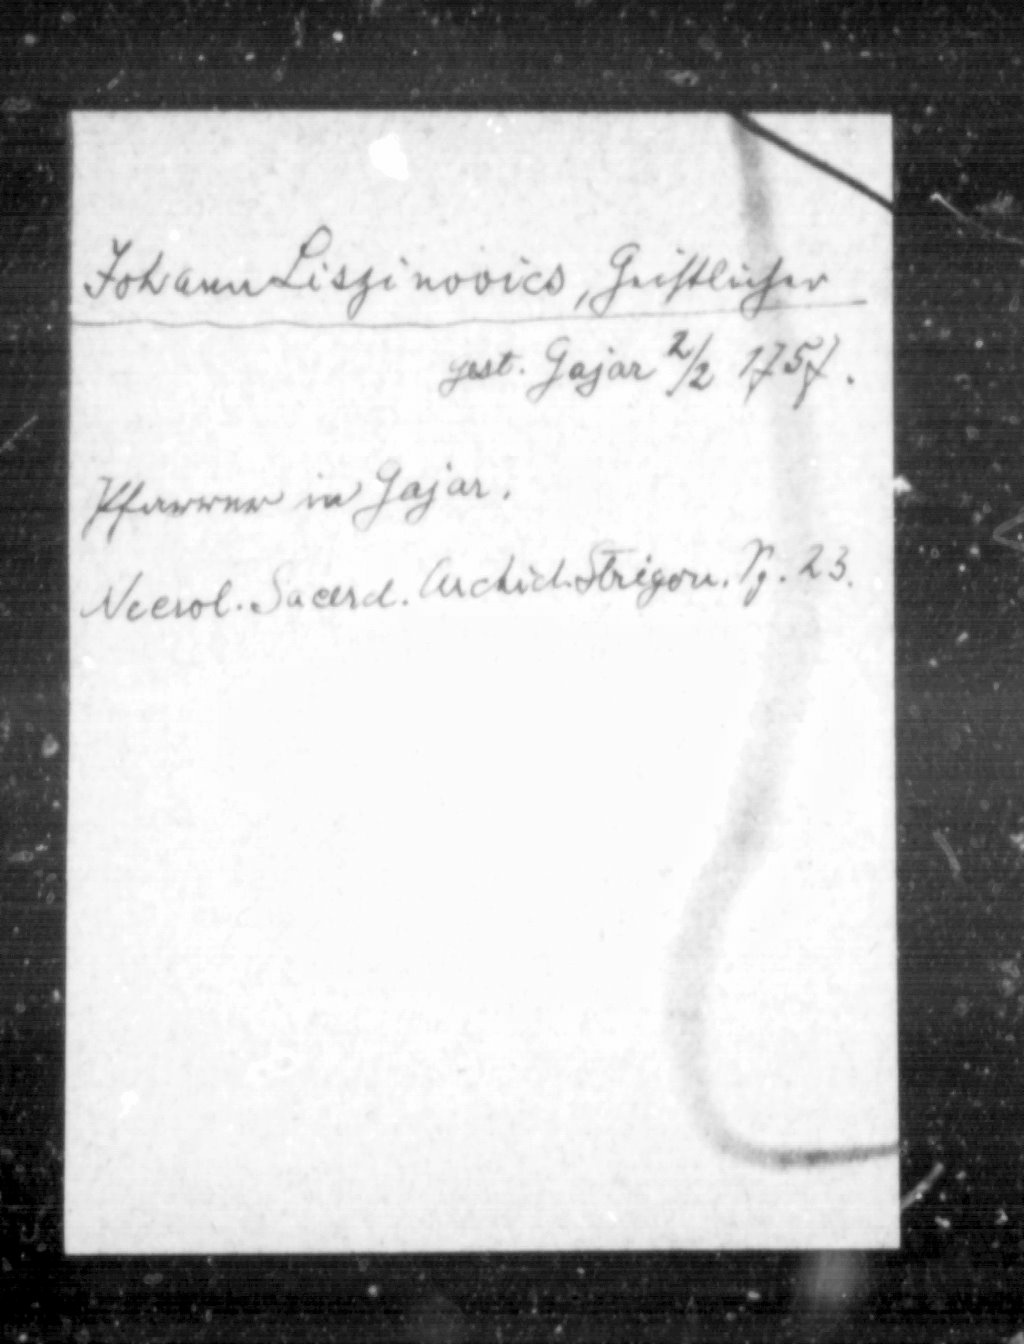 Johann Liszinovics, Geistlicher
gest. Gajar 2/2 1757.
Pfarrer in Gajar.
Necrol. Sacerd. Archid. Strigon. Pg. 23.